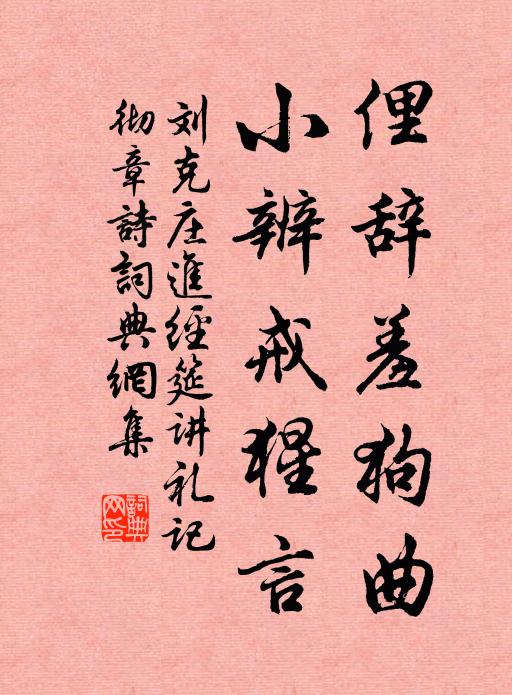 俚辞羞狗曲
小辨戒猩言
刘克庄進經筵讲礼记
彻章詩詞典網集
詞典网印